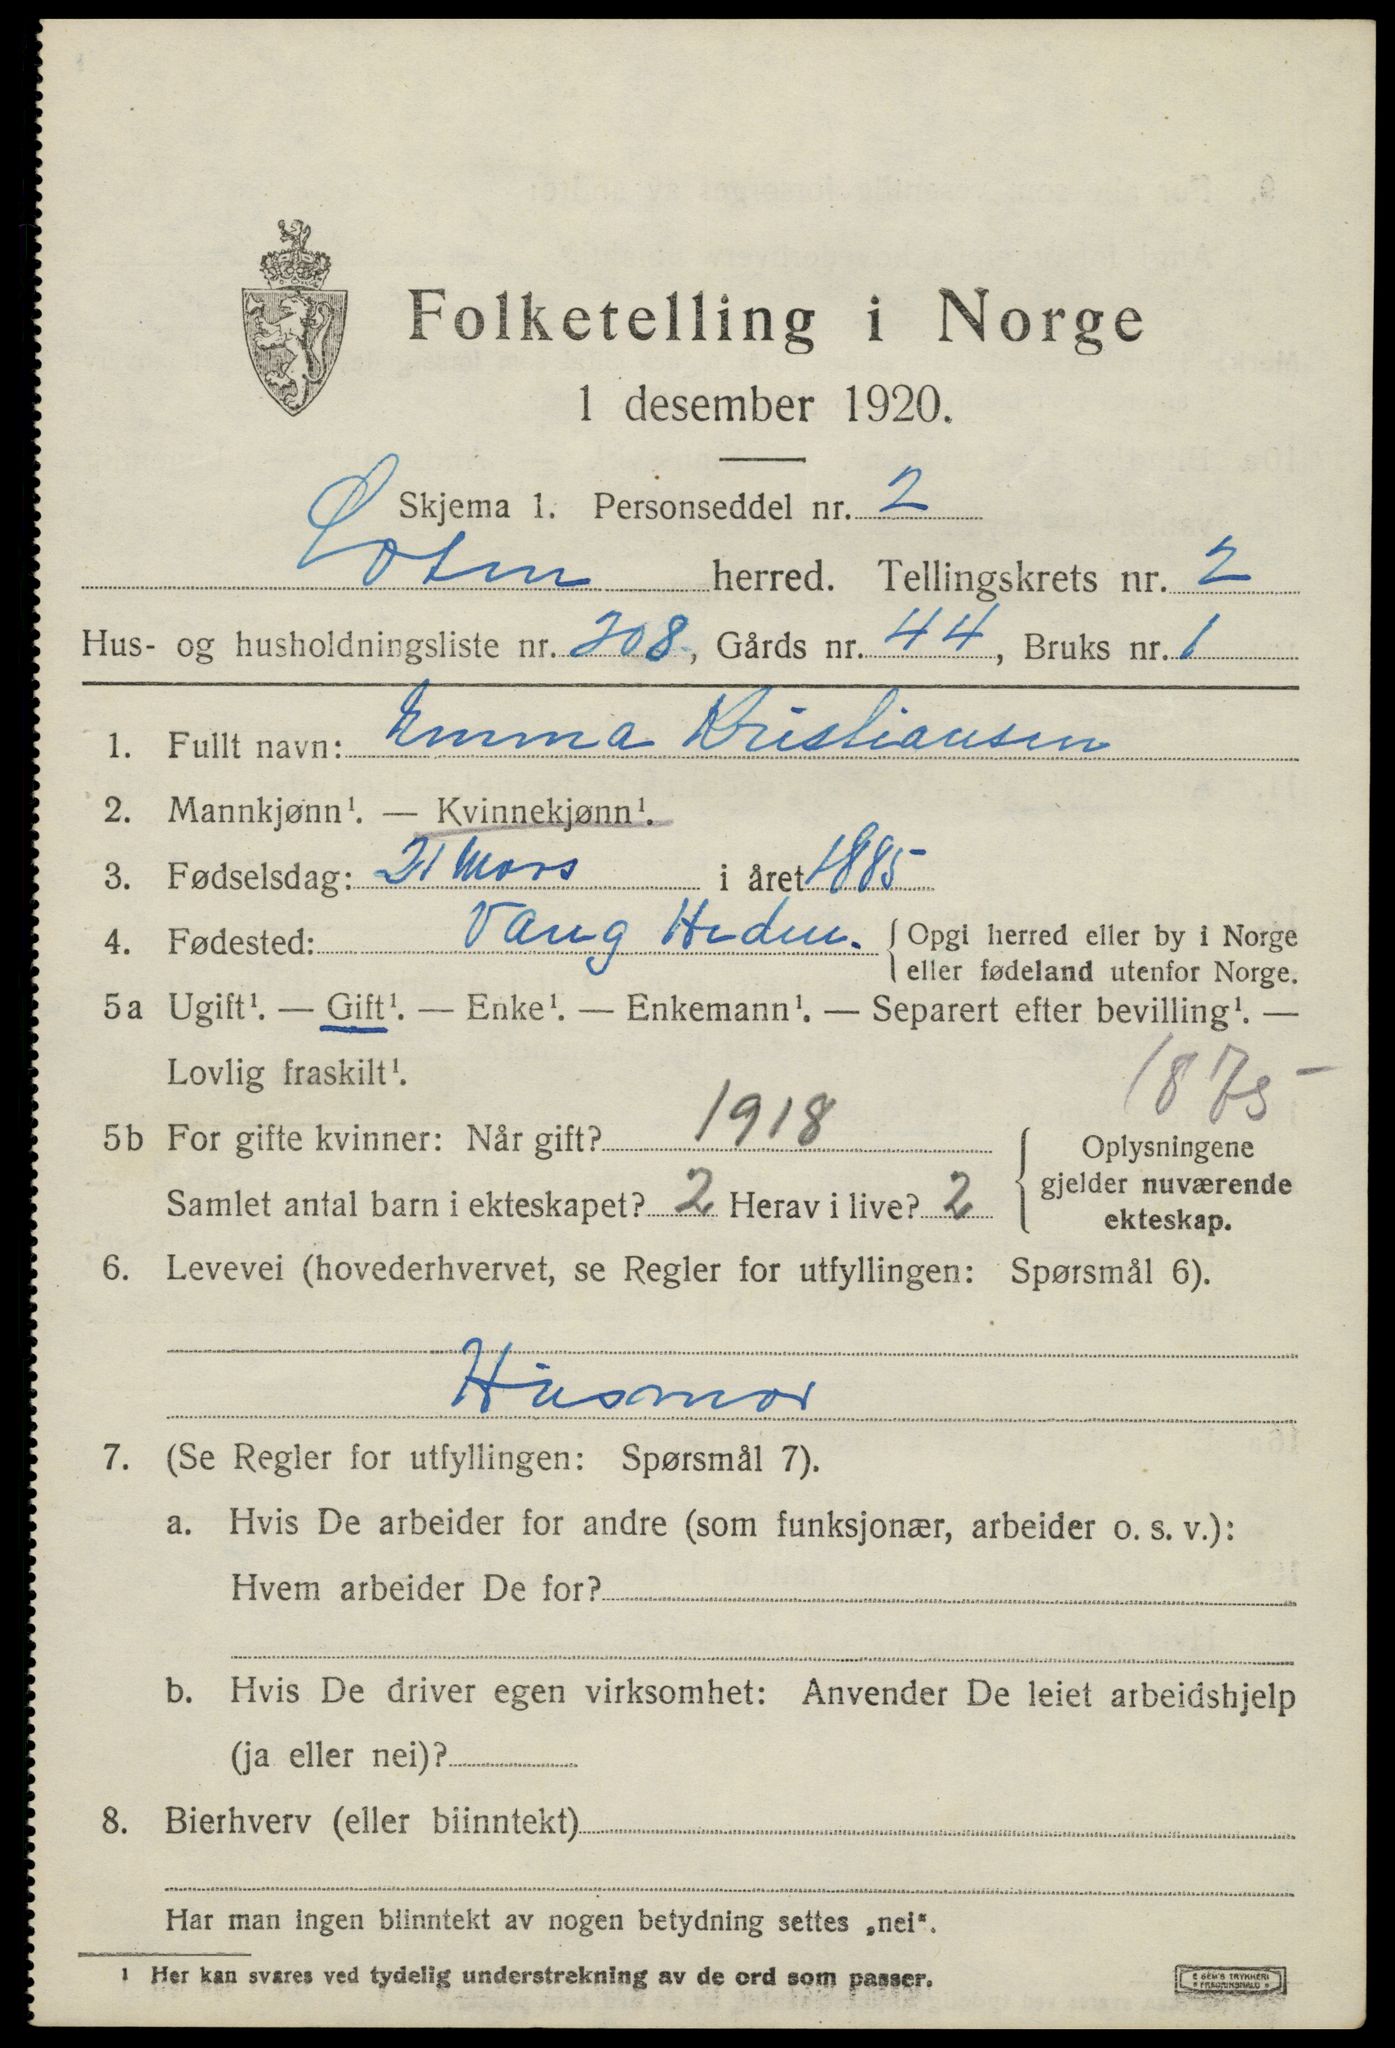 Folketelling i Norge
1 desember 1920.
Skjema 1. Personseddel nr. 2
Løten herred. Tellingskrets nr. 2
Hus- og husholdningsliste nr. 208, Gårds nr. 44, Bruks nr. 1
1. Fullt navn: Emma Kristiansen
2. Mannkjønn¹. — Kvinnekjønn¹.
3. Fødselsdag: 21 Mars i året 1885
4. Fødested: Vang Hedm. { Opgi herred eller by i Norge
eller fødeland utenfor Norge.
5a Ugift¹. — Gift¹. — Enke¹. — Enkemann¹. — Separert efter bevilling¹. —
Lovlig fraskilt¹.
1875
5b For gifte kvinner: Når gift? 1918
Samlet antal barn i ekteskapet? 2 Herav i live? 2
{ Oplysningene
gjelder nuværende
ekteskap.
6. Levevei (hovederhvervet, se Regler for utfyllingen: Spørsmål 6).
Husmor
7. (Se Regler for utfyllingen: Spørsmål 7).
a. Hvis De arbeider for andre (som funksjonær, arbeider o. s. v.):
Hvem arbeider De for?
b. Hvis De driver egen virksomhet: Anvender De leiet arbeidshjelp
(ja eller nei)?
8. Bierhverv (eller biinntekt)
Har man ingen biinntekt av nogen betydning settes „nei“.
¹ Her kan svares ved tydelig understrekning av de ord som passer.
E SEM'S TRYKKERI
FREDRIKSHALD